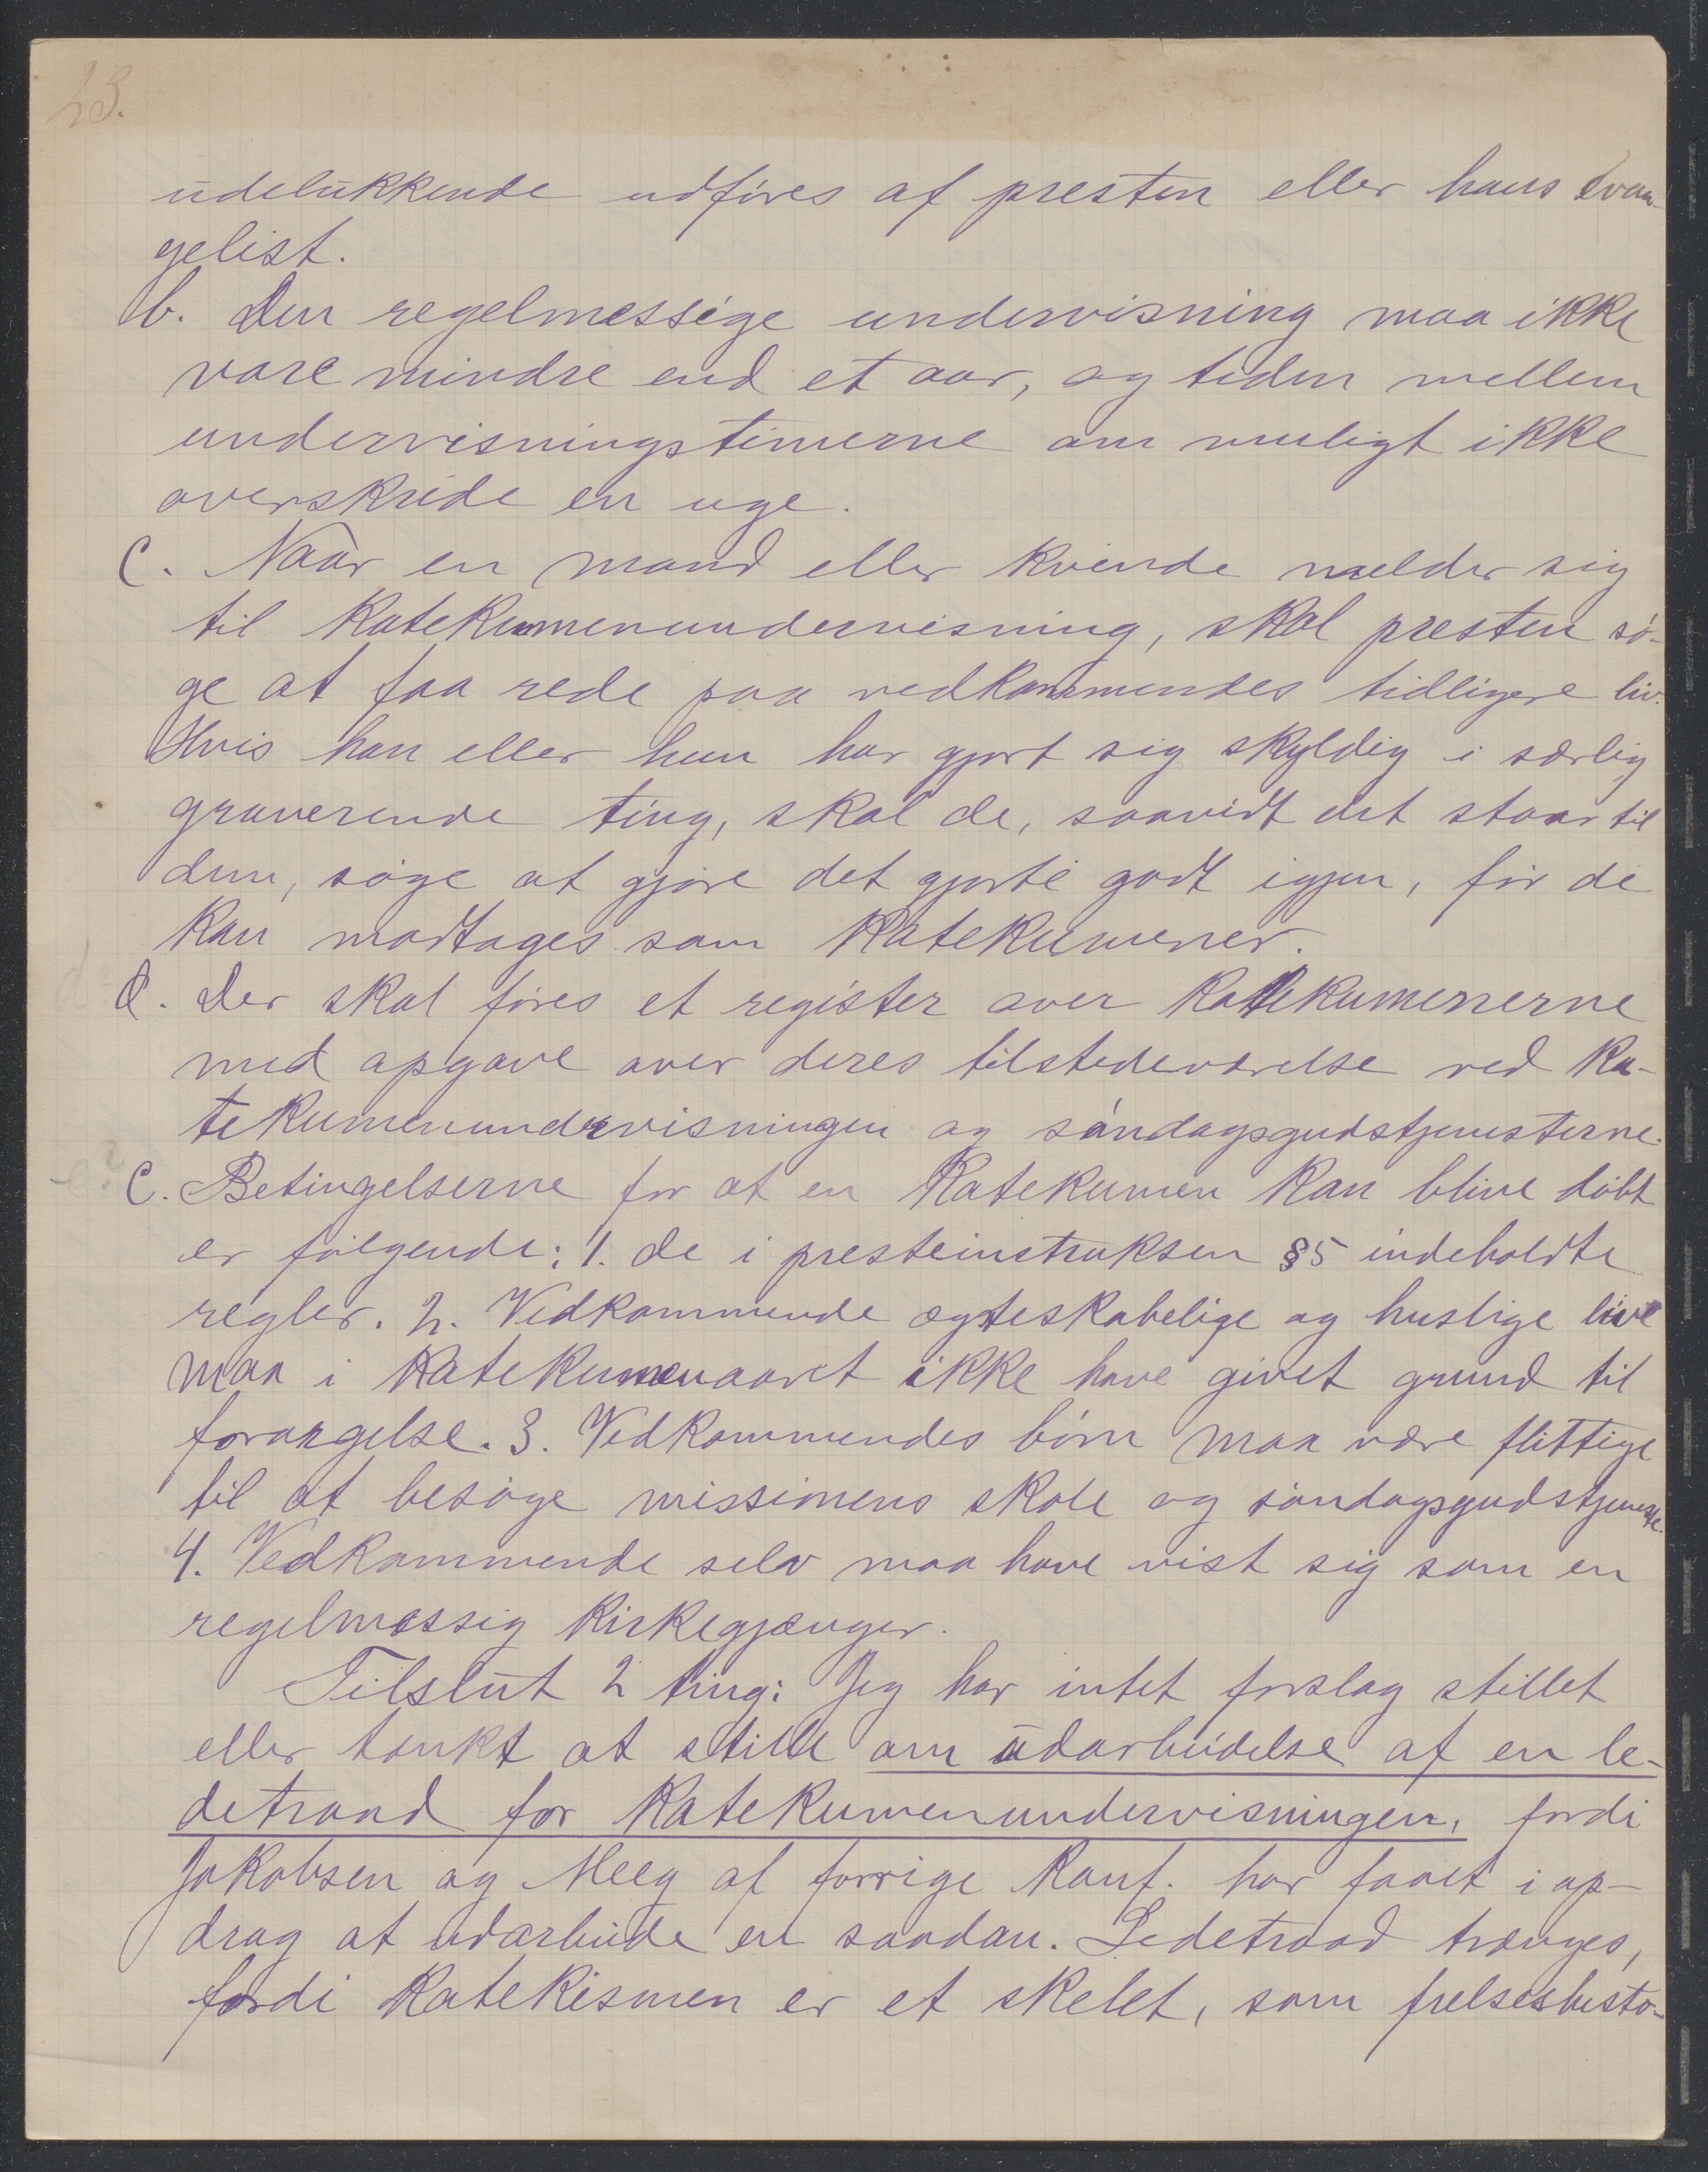 23.
udelukkende udföres af presten eller hans evan-
gelist.
b. Den regelmessige undervisning maa ikke
vare mindre end et aar, og tiden mellem
undervisningstimerne om muligt ikke
overskride en uge.
c. Naar en mand eller kvinde melder sig
til katekumenundervisning, skal presten sö-
ge at faa rede paa vedkommendes tidligere liv.
Hvis han eller hun har gjort sig skyldig i særlig
graverende ting, skal de, saavidt det staar til
dem, söge at gjöre det gjorte godt igjen, för de
kan modtages som katekumener.
d. Der skal föres et register over katekumenerne
med opgave over deres tilstedeværelse ved ka-
tekumenundervisningen og söndagsgudstjenesterne.
e. Betingelserne for at en katekumen kan blive döbt
er fölgende: 1. de i presteinstruksen §5 indeholdte
regler. 2. Vedkommende ægteskabelige og huslige live
maa i katekumenaaret ikke have givet grund til
forargelse. 3. Vedkommendes börn maa være flittige
til at besöge missionens skole og söndagsgudstjeneste.
4. Vedkommende selv maa have vist sig som en
regelmæssig kirkegjænger.
Tilslut 2 ting: Jeg har intet forslag stillet
eller tænkt at stille om udarbeidelse af en le-
detraad for katekumenundervisningen, fordi
Jakobsen og Meeg af forrige konf. har faaet i op-
drag at udarbeide en saadan. Ledetraad trænges,
fordi katekismen er et skelet, som frelseshisto-